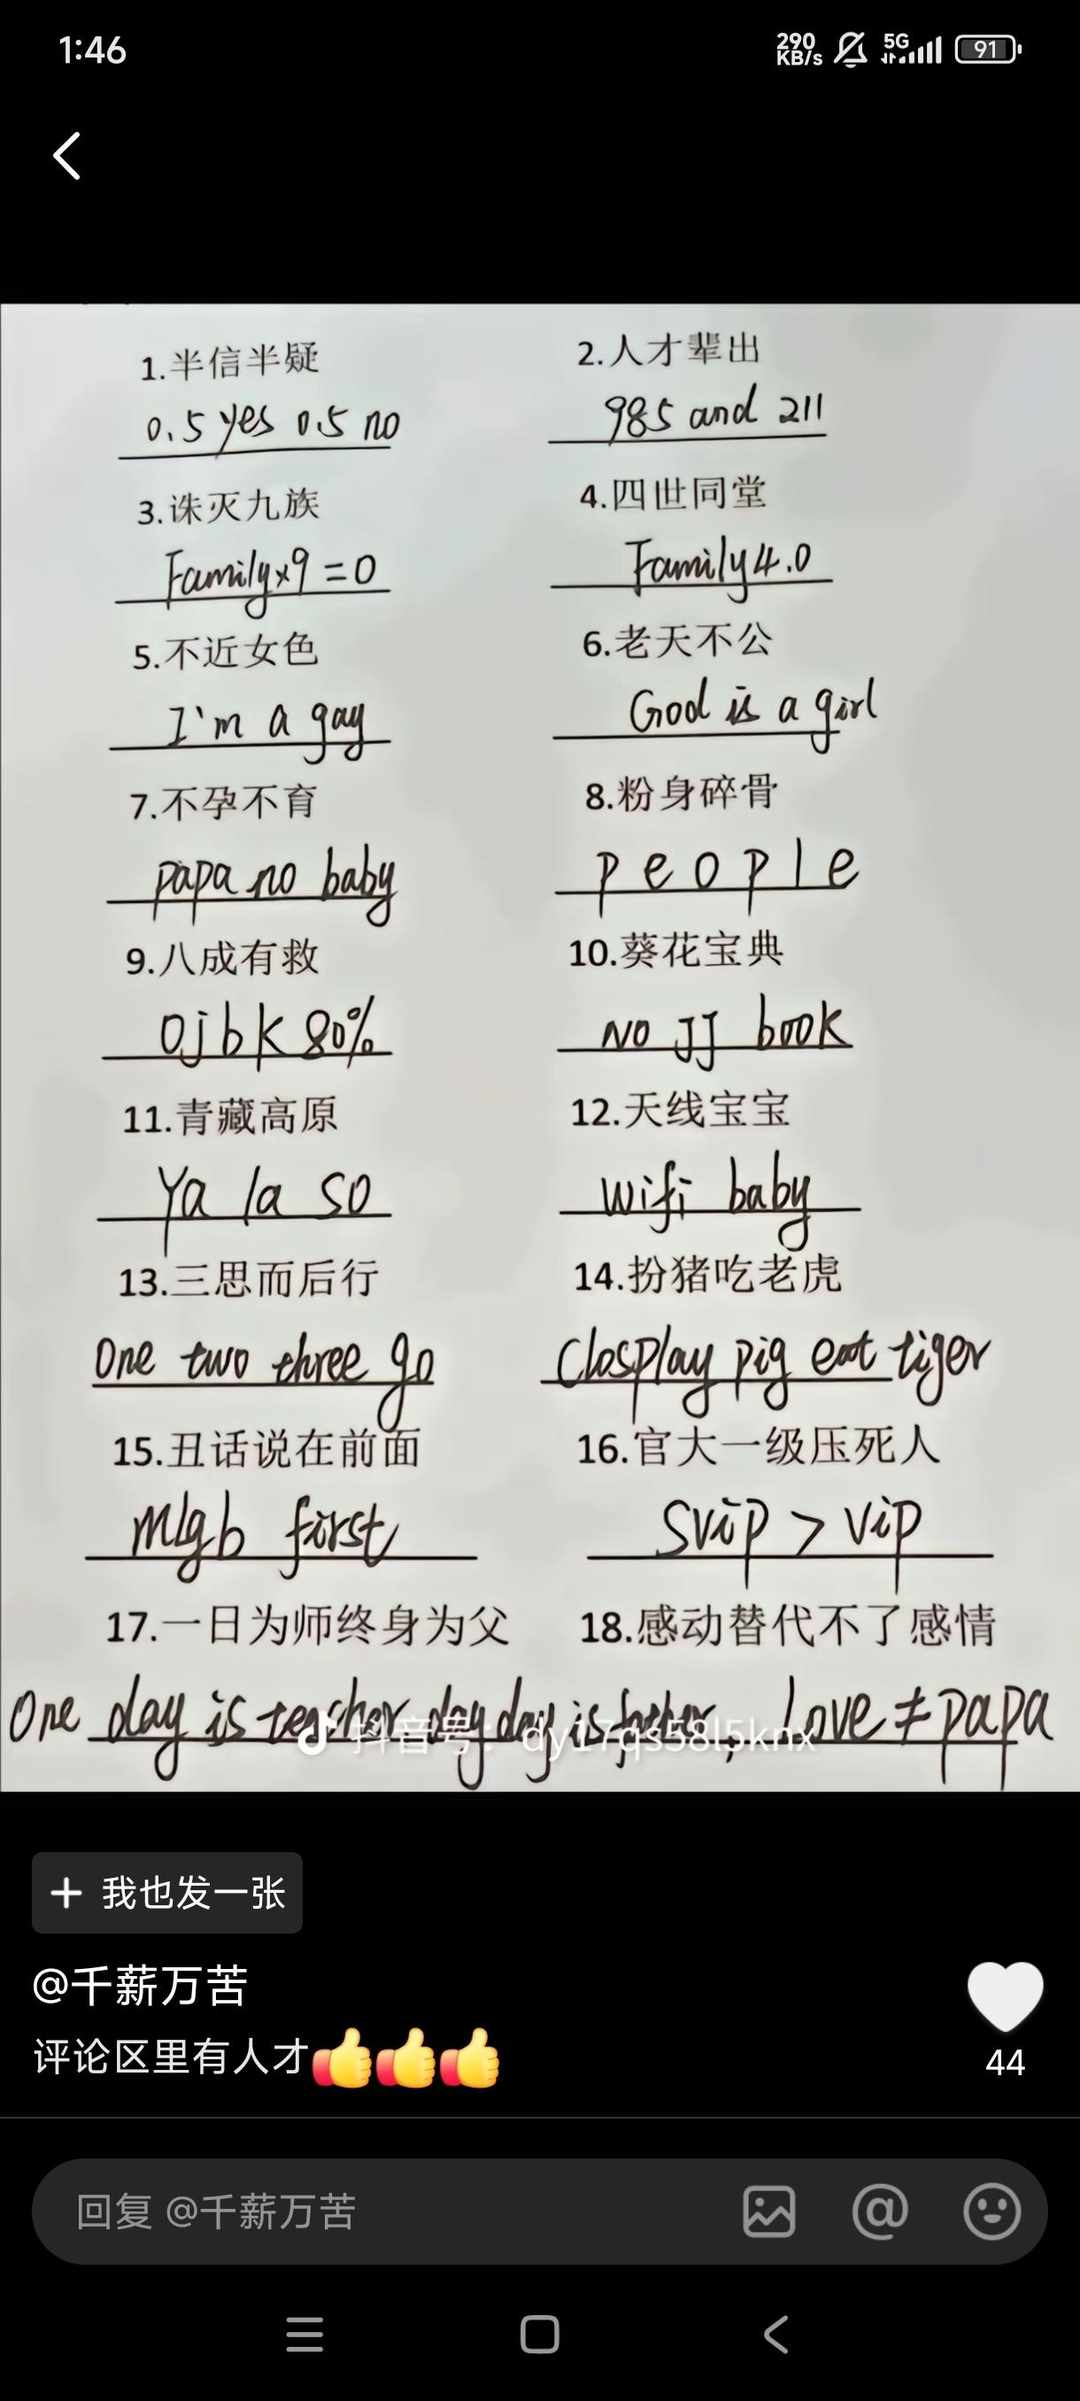 1:46
290 KB/s 5G 91
1.半信半疑 2.人才辈出
0.5 yes 0.5 no 985 and 211
3.诛灭九族 4.四世同堂
Family×9=0 Family4.0
5.不近女色 6.老天不公
I'm a gay God is a girl
7.不孕不育 8.粉身碎骨
papa no baby p e o p l e
9.八成有救 10.葵花宝典
ojbk 80% no JJ book
11.青藏高原 12.天线宝宝
Ya la so wifi baby
13.三思而后行 14.扮猪吃老虎
One two three go Closplay pig eat tiger
15.丑话说在前面 16.官大一级压死人
mlgb first svip > vip
17.一日为师终身为父 18.感动替代不了感情
One day is teacher day day is father, love ≠ papa
抖音号: dy17qs58l5knx
+ 我也发一张
@千薪万苦
评论区里有人才👍👍👍
44
回复 @千薪万苦